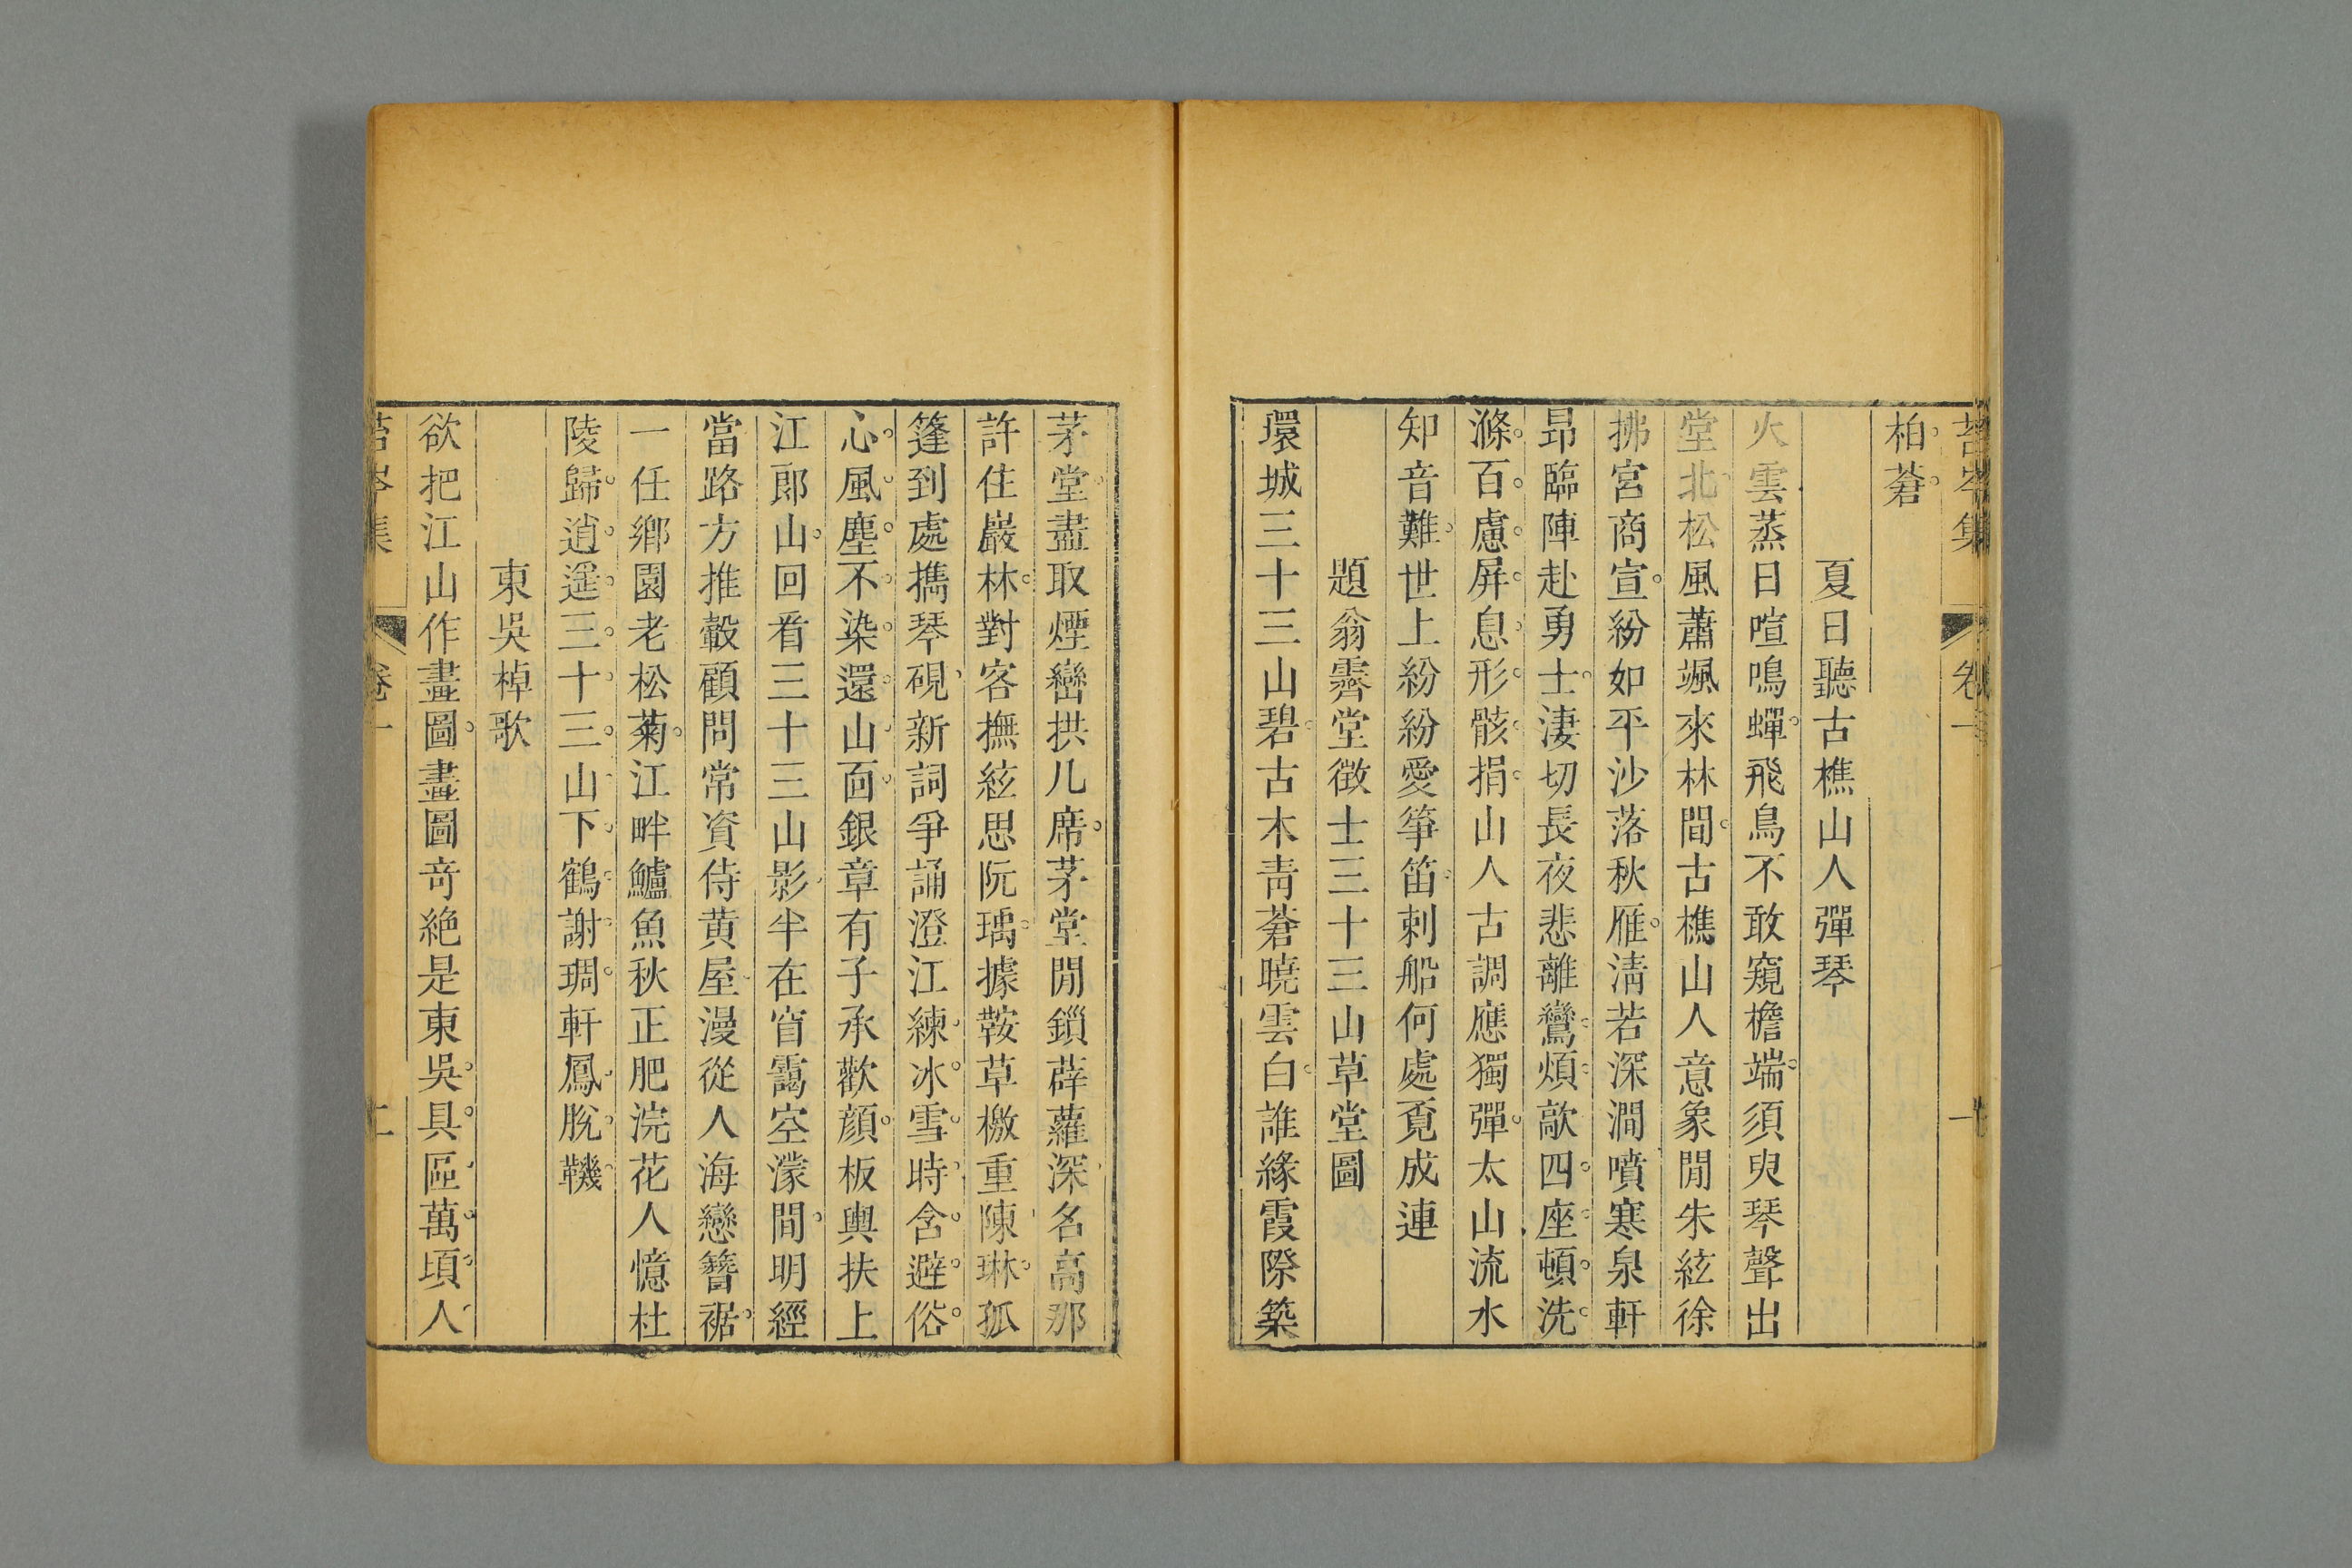 苔岑集 卷一 一
柏蒼
夏日聽古樵山人彈琴
火雲蒸日喧鳴蟬飛鳥不敢窺檐端須臾琴聲出
堂北松風蕭颯來林間古樵山人意象閒朱絃徐
拂宮商宣紛如平沙落秋雁清若深澗噴寒泉軒
昂臨陣赴勇士淒切長夜悲離鸞煩歊四座頓洗
滌百慮屏息形骸捐山人古調應獨彈太山流水
知音難世上紛紛愛箏笛刺船何處覓成連
題翁霽堂徵士三十三山草堂圖
環城三十三山碧古木青蒼曉雲白誰緣霞際築
茅堂盡取煙巒拱几席茅堂閒鎖薜蘿深名高那
許住巖林對客撫絃思阮瑀據鞍草檄重陳琳孤
篷到處攜琴硯新詞爭誦澄江練冰雪時含避俗
心風塵不染還山面銀章有子承歡顏板輿扶上
江郎山回看三十三山影半在窅靄空濛間明經
當路方推轂顧問常資侍黃屋漫從人海戀簪裾
一任鄉園老松菊江畔鱸魚秋正肥浣花人憶杜
陵歸逍遥三十三山下鶴謝琱軒鳳脫鞿
東吳棹歌
欲把江山作畫圖畫圖奇絕是東吳具區萬頃人
苔岑集 卷一 二